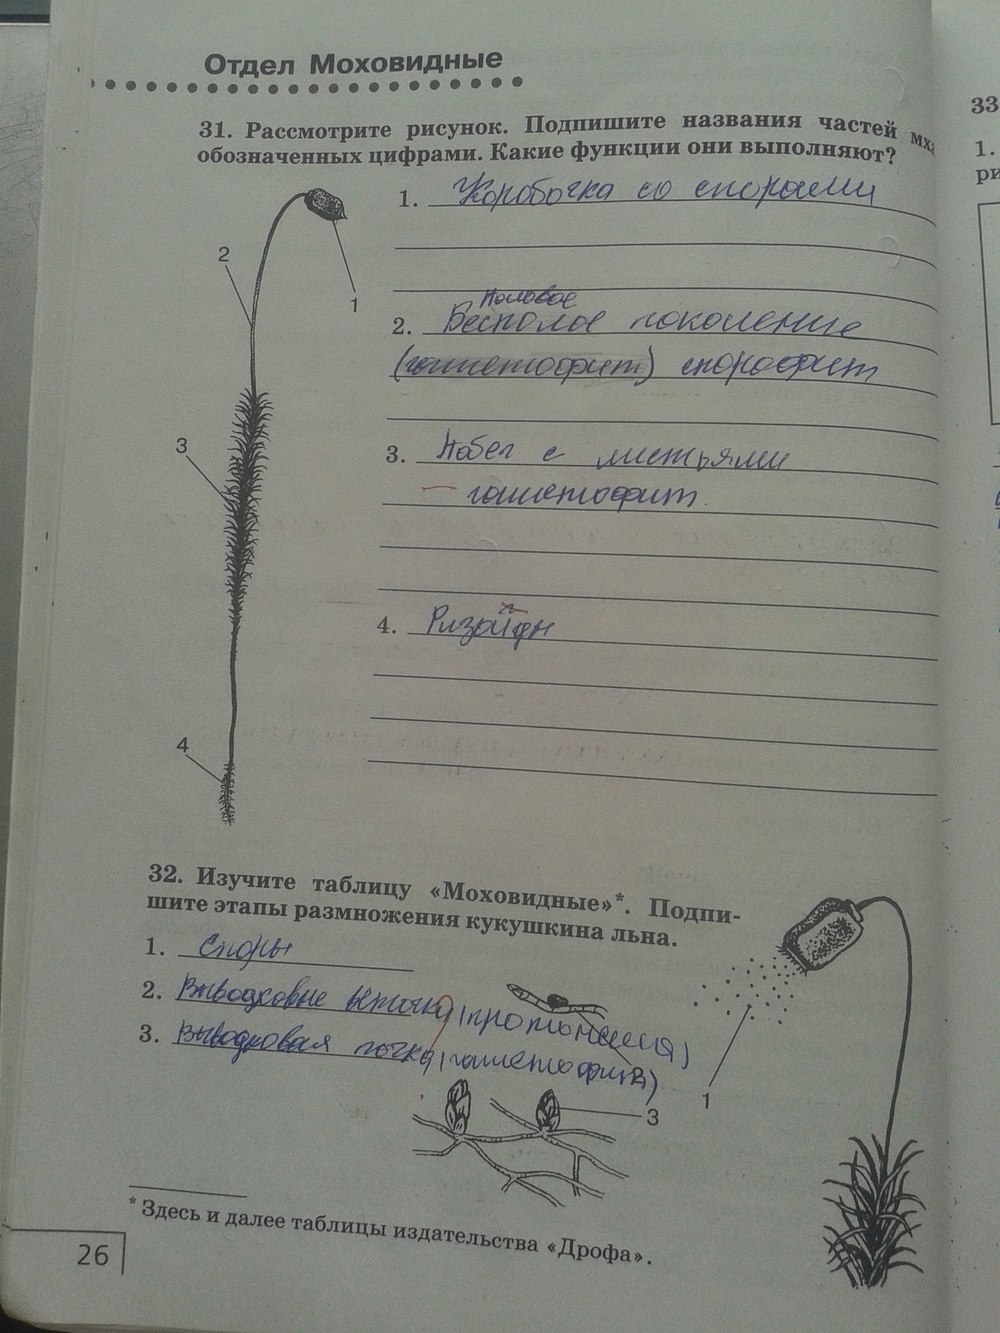 Отдел Моховидные
31. Рассмотрите рисунок. Подпишите названия частей мха
обозначенных цифрами. Какие функции они выполняют?
1. Коробочка со спорами
2
1
Половое
2. Бесполое поколение
(гаметофит) спорофит
3
3. Побег с листьями
– гаметофит.
4. Ризойды
4
32. Изучите таблицу «Моховидные»*. Подпи-
шите этапы размножения кукушкина льна.
1. Споры
2. Выводковые (протонема)
3. Выводковая почка (гаметофит)
1
3
* Здесь и далее таблицы издательства «Дрофа».
26
33
1.
ри